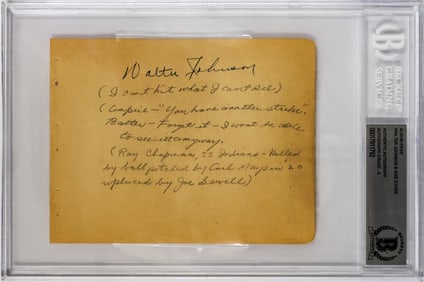 Walter Johnson
(I cant hit what I cant see.)
(Umpire - "You have another strike".
Batter - Forget it - I wont be able
to see it anyway.
(Ray Chapman, SS Indians - Killed
by ball pitched by Carl Mays in '20
replaced by Joe Sewell)
BECKETT
GRADING
SERVICES
ALBUM PAGE
WALTER JOHNSON
AUTHENTIC AUTOGRAPH
BECKETT